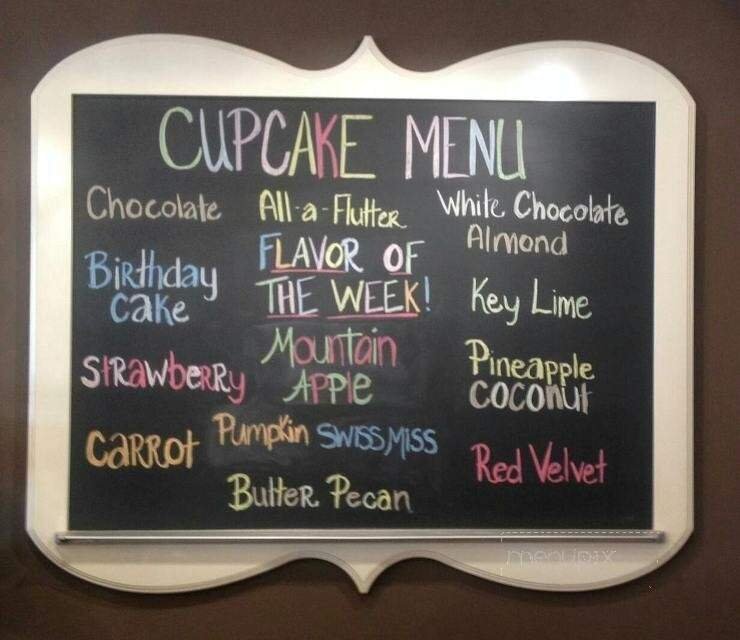 CUPCAKE MENU
Chocolate
Birthday
Cake
Strawberry
Carrot
All-a-Flutter
FLAVOR OF
THE WEEK!
Mountain
Apple
Pumpkin
Swiss Miss
Butter Pecan
White Chocolate
Almond
Key Lime
Pineapple
Coconut
Red Velvet
menupix